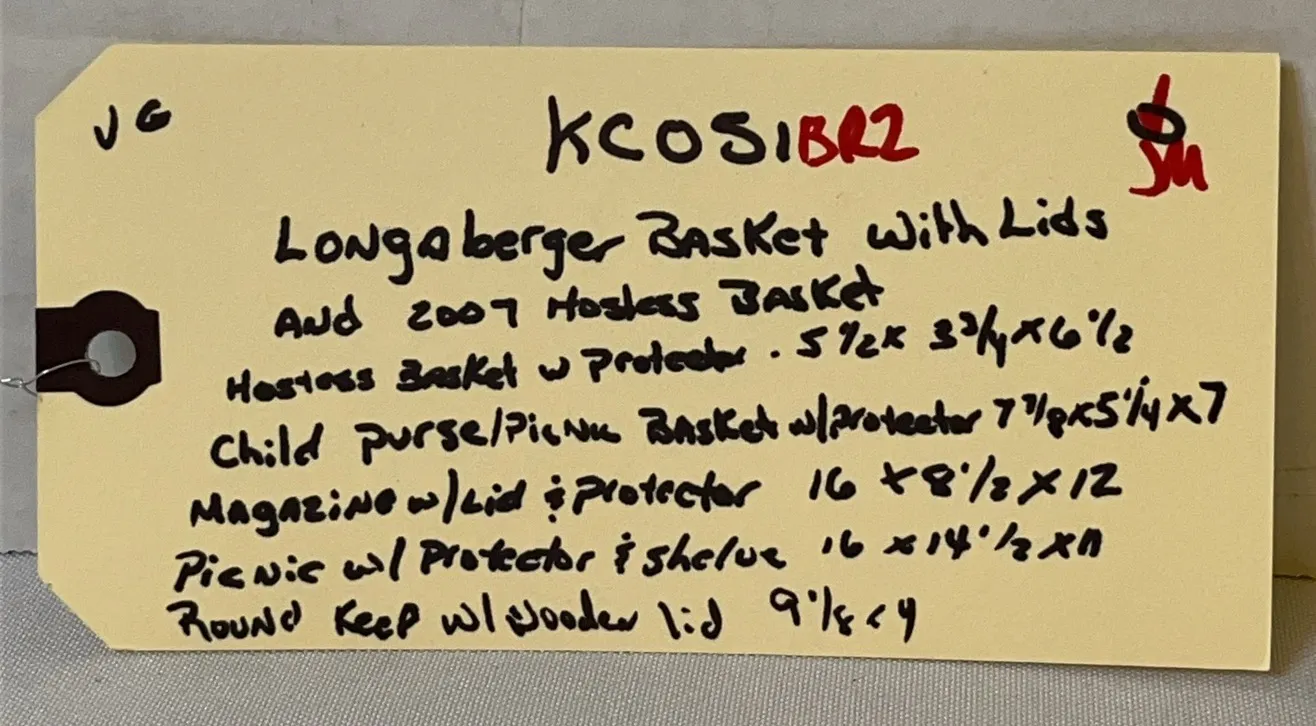 JG KC051BR2 JM
Longaberger Basket with Lids
And 2007 Hostess Basket
Hostess Basket w Protector. 5 1/2 x 3 3/4 x 6 1/2
Child purse/Picnic Basket w/protector 7 7/8 x 5 1/4 x 7
Magazine w/Lid & Protector 16 x 8 1/2 x 12
Picnic w/ Protector & shelve 16 x 14 1/2 x 11
Round Keep w/ Wooden lid 9 1/8 x 4